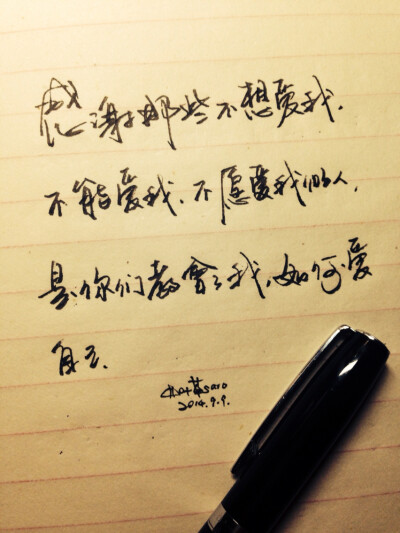 感谢那些不想爱我.
不能爱我、不愿爱我的人.
是你们教會了我,如何爱
自己.
saro
2014.9.9.